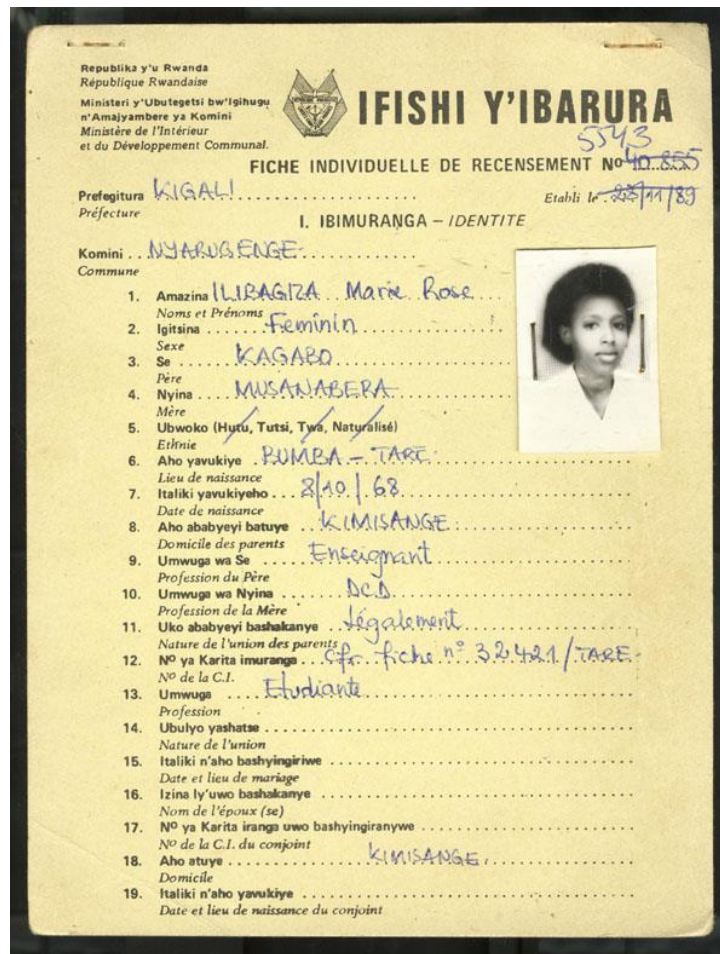 Republika y'u Rwanda
République Rwandaise
Ministeri y'Ubutegetsi bw'Igihugu
n'Amajyambere ya Komini
Ministère de l'Intérieur
et du Développement Communal.
IFISHI Y'IBARURA
5543
FICHE INDIVIDUELLE DE RECENSEMENT Nº 40.855
Prefegitura KIGALI
Préfecture
Etabli le 23/11/89
I. IBIMURANGA – IDENTITE
Komini NYARUGENGE
Commune
1. Amazina ILIBAGIZA Marie Rose
Noms et Prénoms
2. Igitsina Feminin
Sexe
3. Se KAGABO
Père
4. Nyina MUSANABERA
Mère
5. Ubwoko (Hutu, Tutsi, Twa, Naturalisé)
Ethnie
6. Aho yavukiye BUMBA – TARE
Lieu de naissance
7. Italiki yavukiyeho 8/10/68
Date de naissance
8. Aho ababyeyi batuye KIMISANGE
Domicile des parents
9. Umwuga wa Se Enseignant
Profession du Père
10. Umwuga wa Nyina DCD
Profession de la Mère
11. Uko ababyeyi bashakanye Légalement
Nature de l'union des parents
12. Nº ya Karita imuranga Cfr fiche nº 32421/TARE
Nº de la C.I.
13. Umwuga Etudiante
Profession
14. Ubulyo yashatse
Nature de l'union
15. Italiki n'aho bashyingiriwe
Date et lieu de mariage
16. Izina ly'uwo bashakanye
Nom de l'époux (se)
17. Nº ya Karita iranga uwo bashyingiranywe
Nº de la C.I. du conjoint
18. Aho atuye KIMISANGE
Domicile
19. Italiki n'aho yavukiye
Date et lieu de naissance du conjoint